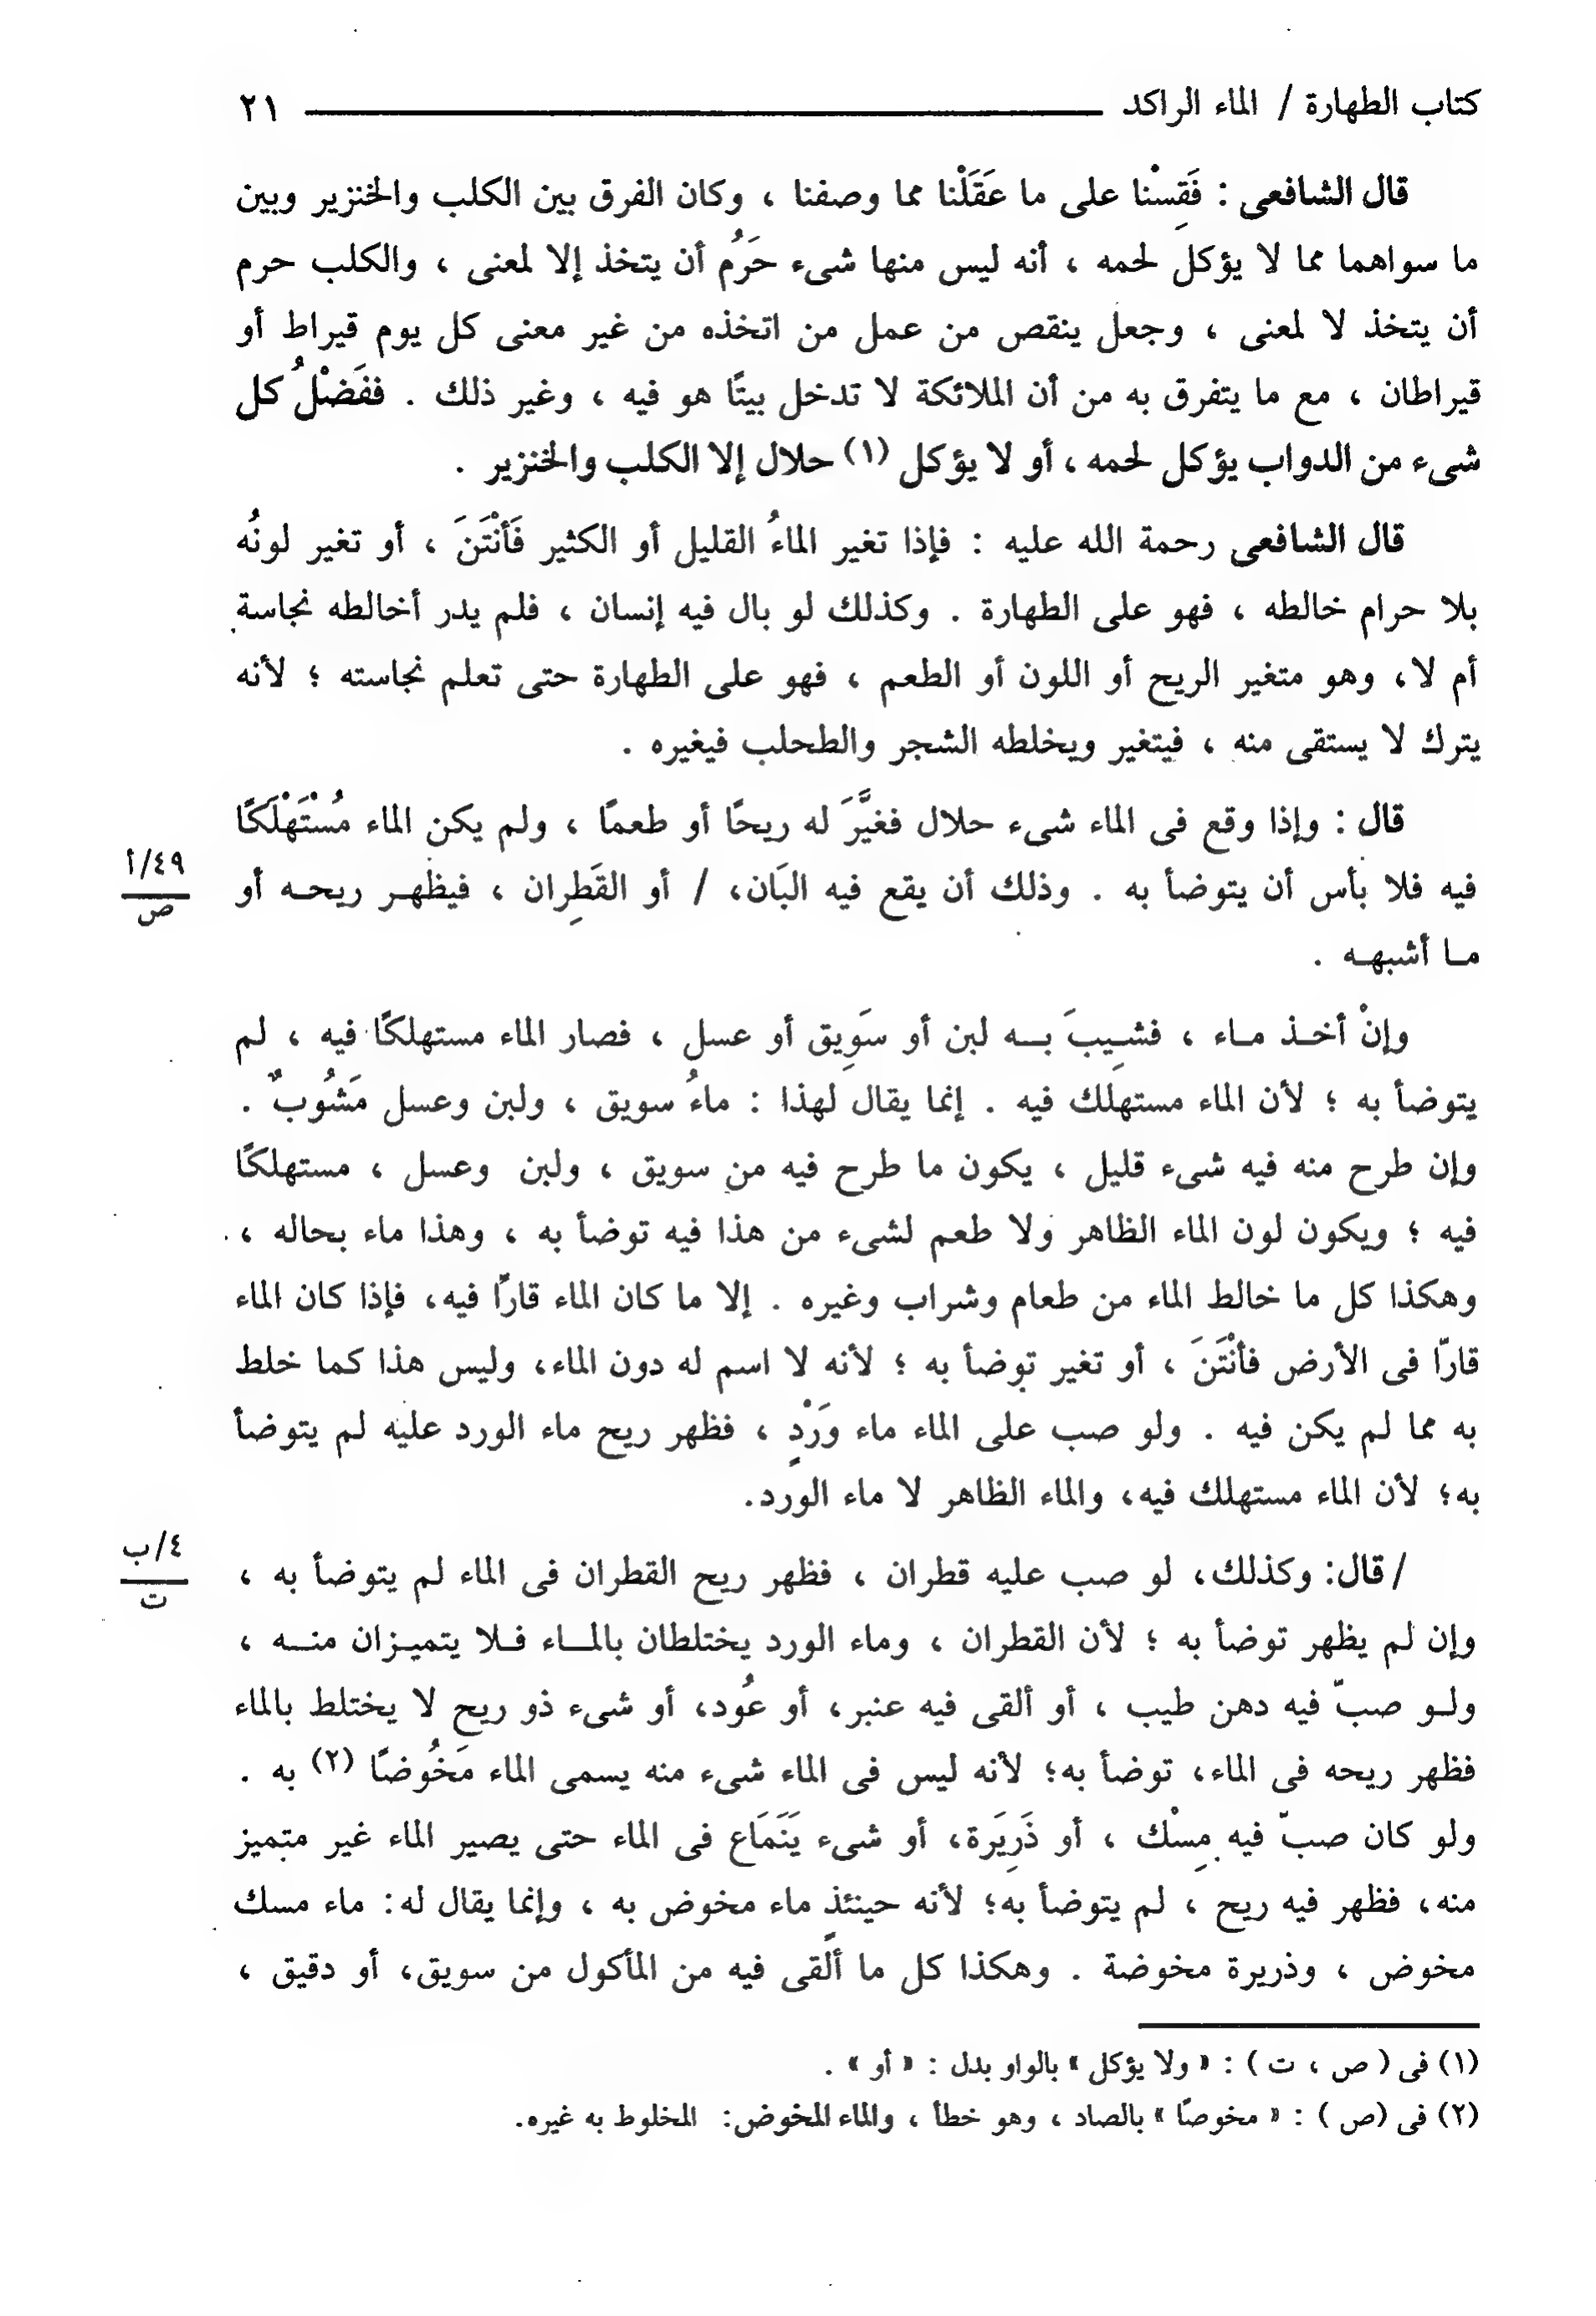 كتاب الطهارة / الماء الراكد ٢١
قال الشافعى : فَقِسْنا على ما عَقَلْنا مما وصفنا ، وكان الفرق بين الكلب والخنزير وبين
ما سواهما مما لا يؤكل لحمه ، أنه ليس منها شىء حَرُم أن يتخذ إلا لمعنى ، والكلب حرم
أن يتخذ لا لمعنى ، وجعل ينقص من عمل من اتخذه من غير معنى كل يوم قيراط أو
قيراطان ، مع ما يتفرق به من أن الملائكة لا تدخل بيتًا هو فيه ، وغير ذلك . ففَضْلُ كل
شىء من الدواب يؤكل لحمه ، أو لا يؤكل (١) حلال إلا الكلب والخنزير .
قال الشافعى رحمة الله عليه : فإذا تغير الماءُ القليل أو الكثير فَأنْتَنَ ، أو تغير لونُه
بلا حرام خالطه ، فهو على الطهارة . وكذلك لو بال فيه إنسان ، فلم يدر أخالطه نجاسة
أم لا، وهو متغير الريح أو اللون أو الطعم ، فهو على الطهارة حتى تعلم نجاسته ؛ لأنه
يترك لا يستقى منه ، فيتغير ويخلطه الشجر والطحلب فيغيره .
قال : وإذا وقع فى الماء شىء حلال فغيَّرَ له ريحًا أو طعمًا ، ولم يكن الماء مُسْتَهْلَكًا
فيه فلا بأس أن يتوضأ به . وذلك أن يقع فيه البَان، / أو القَطِران ، فيظهر ريحه أو
ما أشبهه .
٤٩/أ
ص
وإنْ أخذ ماء ، فشِيبَ به لبن أو سَوِيق أو عسل ، فصار الماء مستهلكًا فيه ، لم
يتوضأ به ؛ لأن الماء مستهلك فيه . إنما يقال لهذا : ماءُ سويق ، ولبن وعسل مَشُوبٌ .
وإن طرح منه فيه شىء قليل ، يكون ما طرح فيه من سويق ، ولبن وعسل ، مستهلكًا
فيه ؛ ويكون لون الماء الظاهر ولا طعم لشىء من هذا فيه توضأ به ، وهذا ماء بحاله ،
وهكذا كل ما خالط الماء من طعام وشراب وغيره . إلا ما كان الماء قارًا فيه، فإذا كان الماء
قارّا فى الأرض فأنْتَنَ ، أو تغير توضأ به ؛ لأنه لا اسم له دون الماء، وليس هذا كما خلط
به مما لم يكن فيه . ولو صب على الماء ماء وَرْدٍ ، فظهر ريح ماء الورد عليه لم يتوضأ
به؛ لأن الماء مستهلك فيه، والماء الظاهر لا ماء الورد.
/ قال: وكذلك، لو صب عليه قطران ، فظهر ريح القطران فى الماء لم يتوضأ به ،
٤/ب
ت
وإن لم يظهر توضأ به ؛ لأن القطران ، وماء الورد يختلطان بالماء فلا يتميزان منه ،
ولو صبّ فيه دهن طيب ، أو ألقى فيه عنبر، أو عُود، أو شىء ذو ريح لا يختلط بالماء
فظهر ريحه فى الماء، توضأ به؛ لأنه ليس فى الماء شىء منه يسمى الماء مَخُوضًا (٢) به .
ولو كان صبّ فيه مِسْك ، أو ذَرِيَرة، أو شىء يَنَمَاع فى الماء حتى يصير الماء غير متميز
منه، فظهر فيه ريح ، لم يتوضأ به؛ لأنه حينئذٍ ماء مخوض به ، وإنما يقال له: ماء مسك
مخوض ، وذريرة مخوضة . وهكذا كل ما ألقى فيه من المأكول من سويق، أو دقيق ،
(١) فى ( ص ، ت ) : « ولا يؤكل » بالواو بدل : « أو » .
(٢) فى (ص ) : « مخوصًا » بالصاد ، وهو خطأ ، والماء المخوض: المخلوط به غيره.